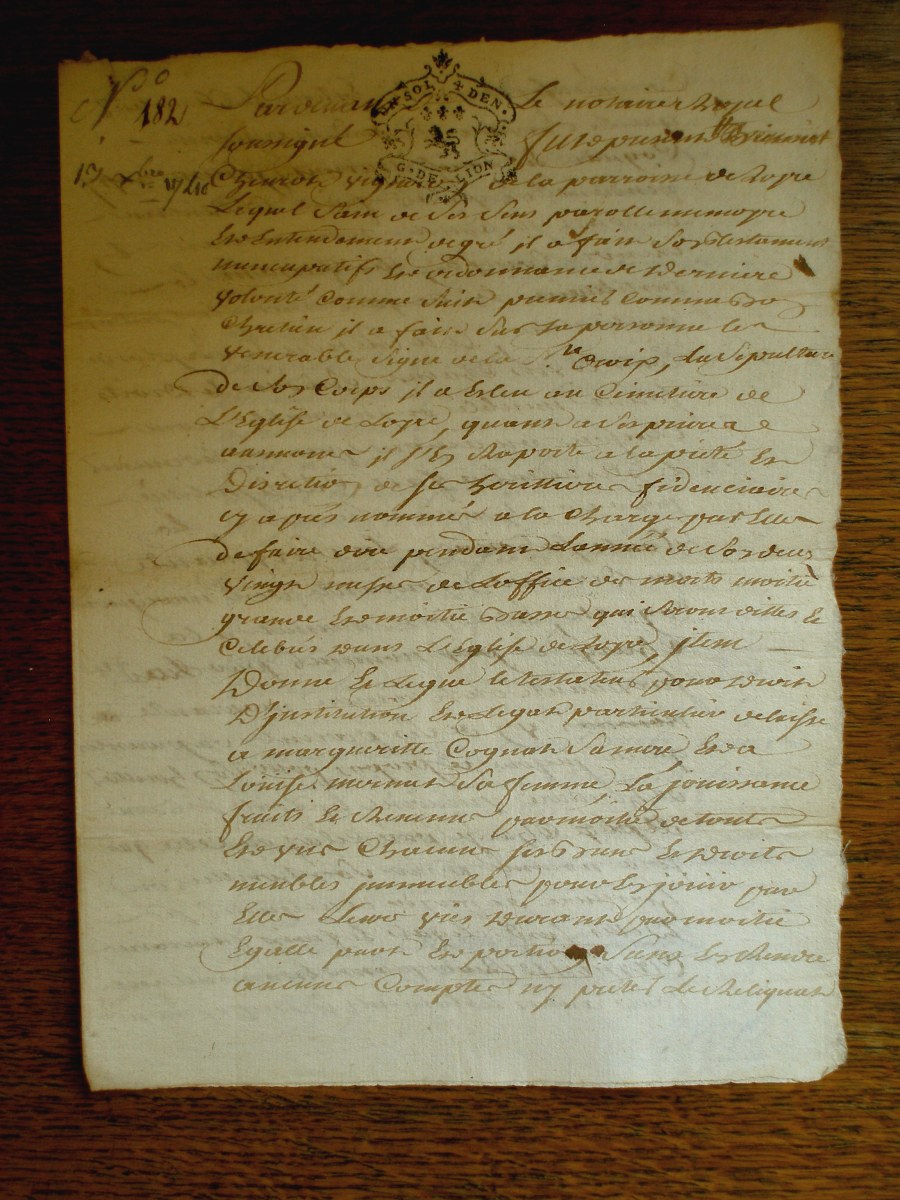 N° 182
Pardevant Le notaire Royal
UN SOL 4 DEN.
G. DE LION
soussigné fut present
13
vigneron de la parroisse de
Lequel sain de ses sens parolle memoyre
Et Entendement de gré il a fait son testament
nuncupatif Et ordonnance de derniere
volonté comme suit premier comme bon
Chretien il a fait sur sa personne le
venerable signe de la Ste Croix, La Sepulture
de son Corps il a Esleu au Cimetiere de
L'Eglise de, quant a ses prieres
aumones il s'En Raporte a la pieté Et
Discretion de ses heritieres fidunciaires
cy apres nommés a la Charge par Elles
de faire dire pendant L'année de son deces
vingt messes de L'office des morts moitié
grande Et moitié basse qui seront dittes Et
Celebrés dans L'Eglise de, jtem
Donne Et Legue le testateur par droit
D'jnstitution Et Legat particulier delaisse
a margueritte Cognat Sa mere Et a
Louise Sa femme La jouissance
fruits Et Revenus par moitié de tous
Et uns Chacuns ses biens Et droits
meubles jmmeubles pour En jouir par
Elles Leurs vies durant par moitié
Egalle part Et portion Sans En Rendre
aucuns Comptes ny preter Le Reliquat